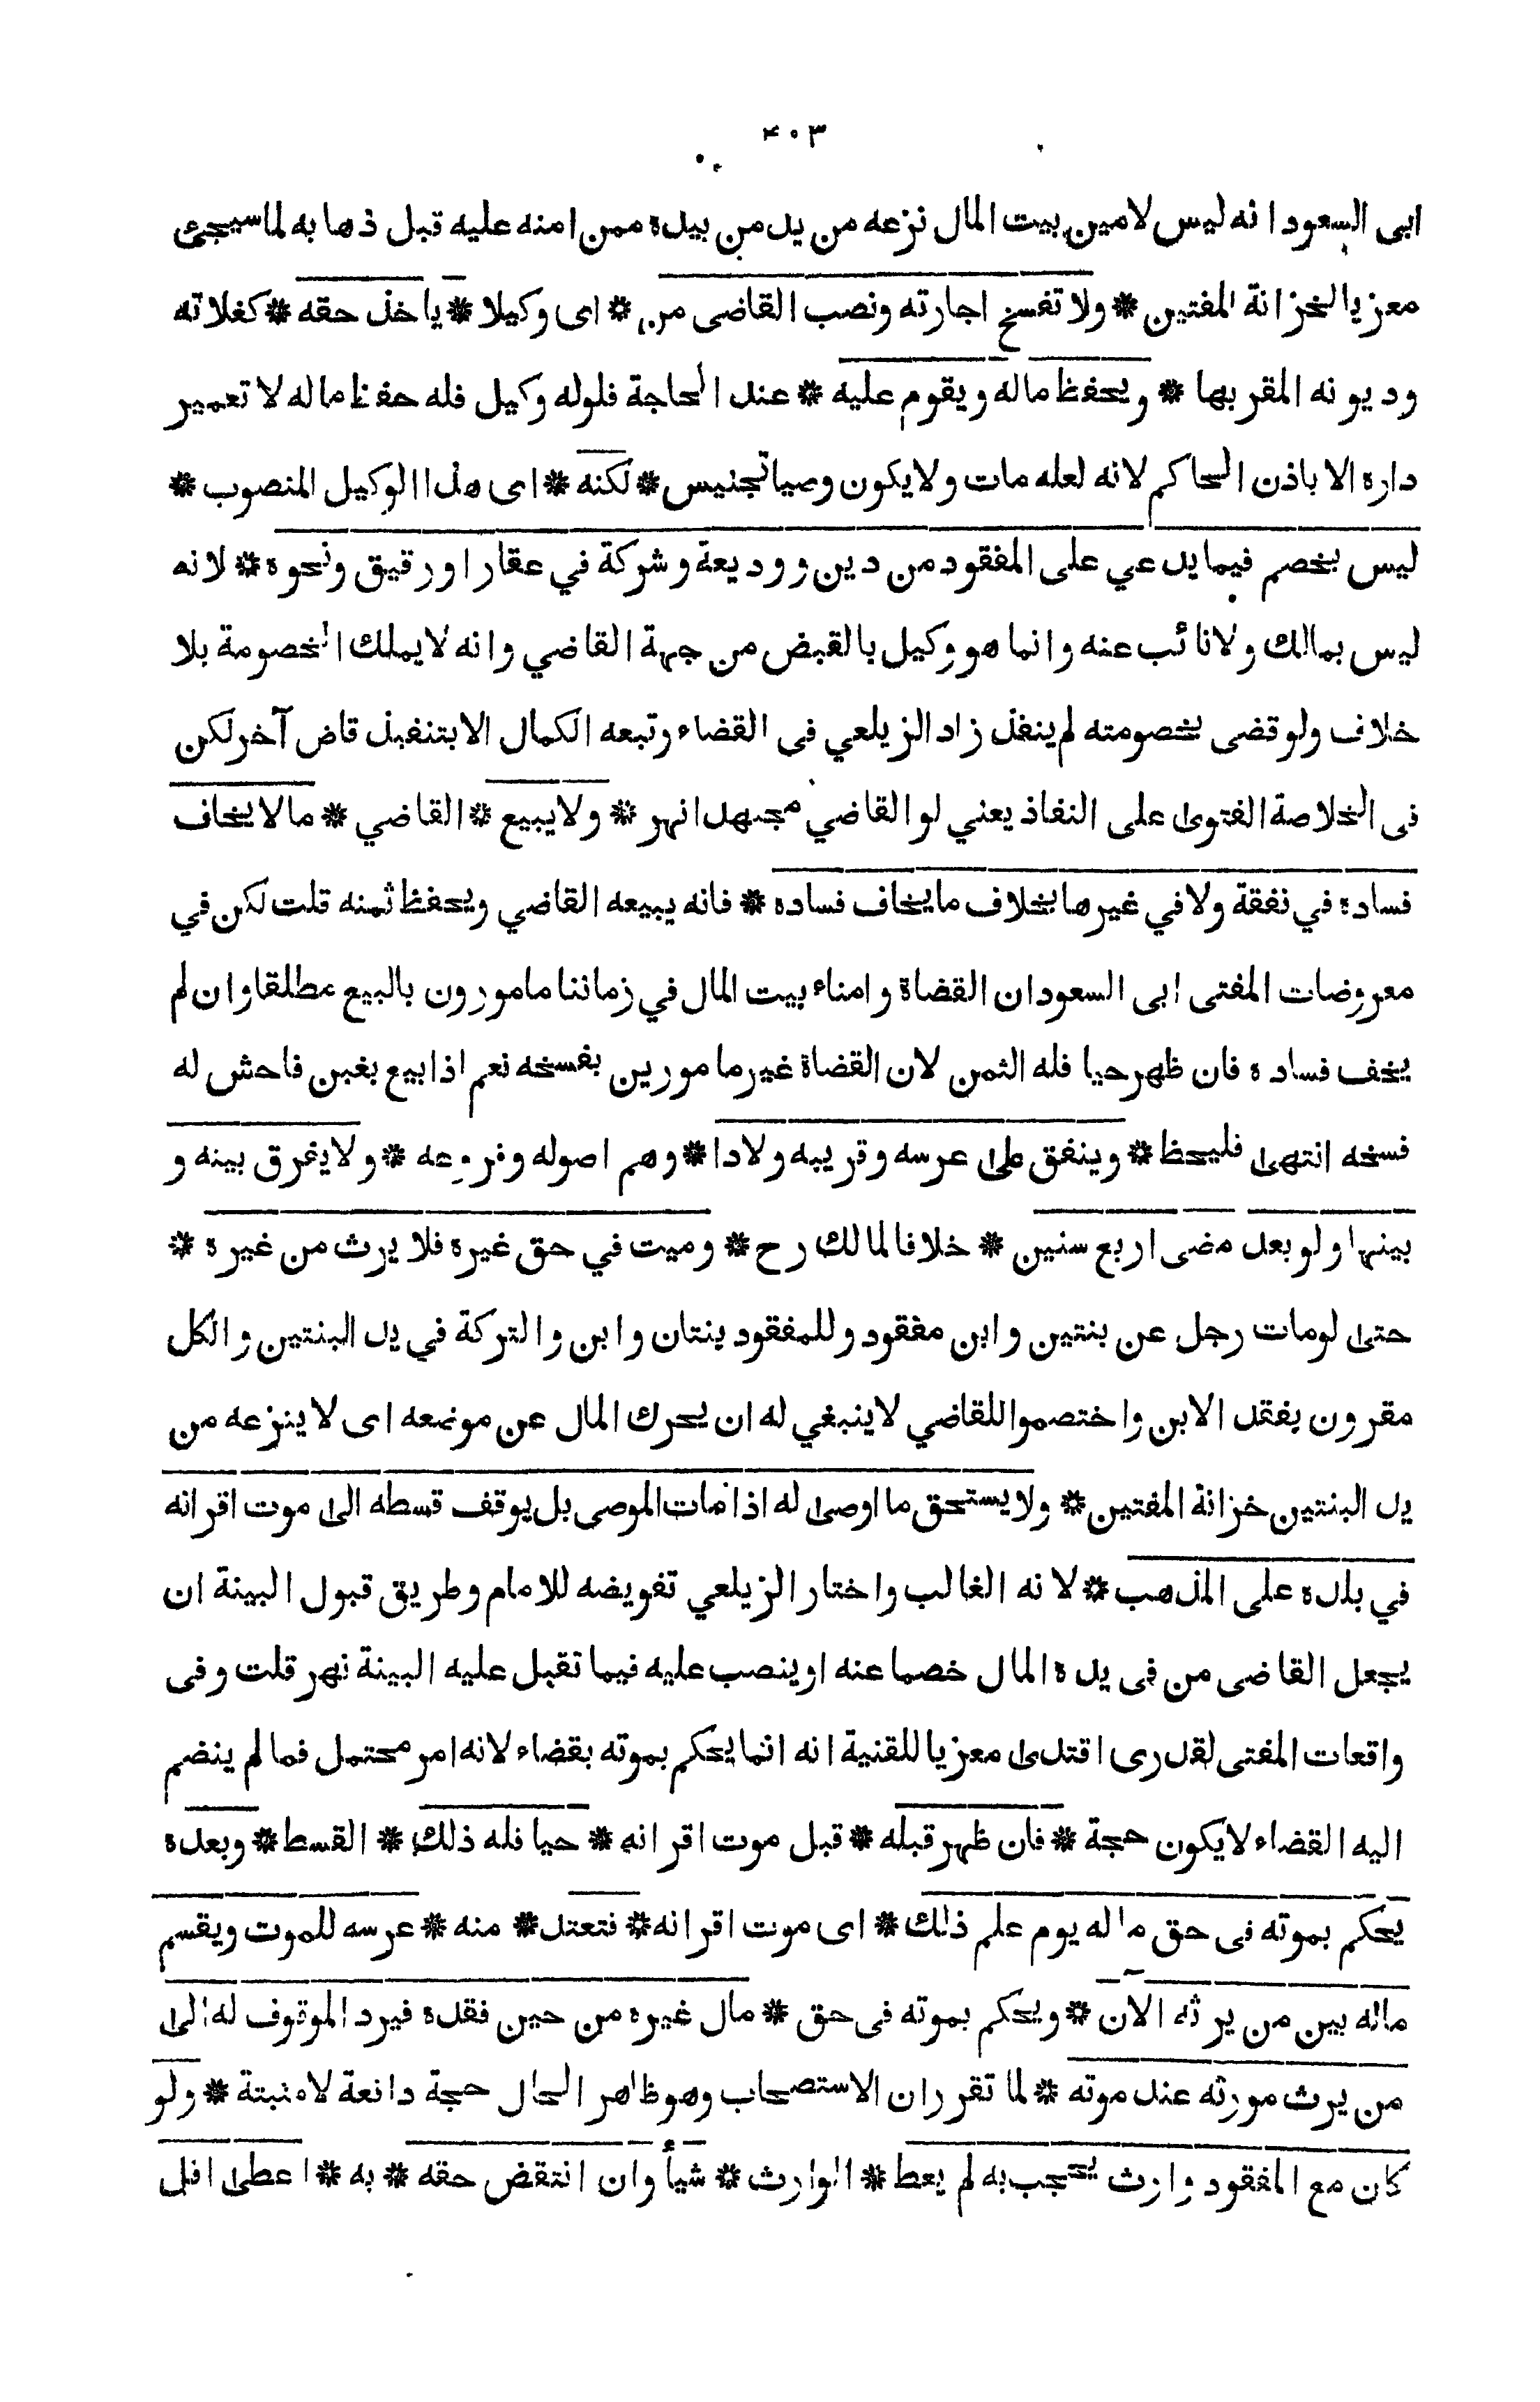 ۴۰۳
ابى السعود انه ليس لامين بيت المال نزعه من يد من بيده ممن امنه عليه قبل ذهابه لما سيجئ
معزيا لخزانة المفتين * ولا تفسخ اجارته ونصب القاضى من * اى وكيلا * ياخذ حقه * كغلاته
وديونه المقر بها * ويحفظ ماله ويقوم عليه * عند الحاجة فلوله وكيل فله حفظ ماله لا تعمير
داره الا باذن الحاكم لانه لعله مات ولا يكون وصيا تجنيس * لكنه * اى هذا الوكيل المنصوب *
ليس بخصم فيما يدعي على المفقود من دين ووديعة وشركة في عقار او رقيق ونحوه * لانه
ليس بمالك ولا نائب عنه وانما هو وكيل بالقبض من جهة القاضي وانه لا يملك الخصومة بلا
خلاف ولو قضى بخصومته لم ينفذ زاد الزيلعي فى القضاء وتبعه الكمال الا بتنفيذ قاض آخر لكن
فى الخلاصة الفتوى على النفاذ يعني لو القاضي مجتهدا نهر * ولا يبيع * القاضي * مالا يخاف
فساده في نفقة ولا في غيرها بخلاف ما يخاف فساده * فانه يبيعه القاضي ويحفظ ثمنه قلت لكن في
معروضات المفتى ابى السعود ان القضاة وامناء بيت المال في زماننا مامورون بالبيع مطلقا وان لم
يخف فساده فان ظهر حيا فله الثمن لان القضاة غير مامورين بفسخه نعم اذا بيع بغبن فاحش له
فسخه انتهى فليحظ * وينفق على عرسه وقريبه ولادا * وهم اصوله وفروعه * ولا يفرق بينه و
بينها ولو بعد مضى اربع سنين * خلافا لمالك رح * وميت في حق غيره فلا يرث من غيره *
حتى لو مات رجل عن بنتين وابن مفقود وللمفقود بنتان وابن والتركة في يد البنتين والكل
مقرون بفقد الابن واختصموا للقاضي لا ينبغي له ان يحرك المال عن موضعه اى لا ينزعه من
يد البنتين خزانة المفتين * ولا يستحق ما اوصى له اذا مات الموصى بل يوقف قسطه الى موت اقرانه
في بلده على المذهب * لانه الغالب واختار الزيلعي تفويضه للامام وطريق قبول البينة ان
يجعل القاضى من فى يده المال خصما عنه او ينصب عليه فيما تقبل عليه البينة نهر قلت وفى
واقعات المفتى لقدرى افتدى معزيا للقنية انه انما يحكم بموته بقضاء لانه امر محتمل فما لم ينضم
اليه القضاء لا يكون حجة * فان ظهر قبله * قبل موت اقرانه * حيا فله ذلك * القسط * وبعده
يحكم بموته فى حق ماله يوم علم ذلك * اى موت اقرانه * فتعتد * منه * عرسه للموت ويقسم
ماله بين من يرثه الآن * ويحكم بموته فى حق * مال غيره من حين فقده فيرد الموقوف له الى
من يرث مورثه عند موته * لما تقرر ان الاستصحاب وهو ظاهر الحال حجة دافعة لا مثبتة * ولو
كان مع المفقود وارث يحجب به لم يعط * الوارث * شيأ وان انتقض حقه * به * اعطى اقل